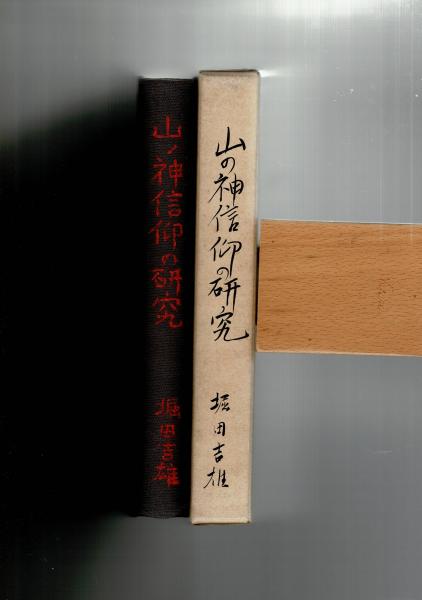 山ノ神信仰の研究
堀田吉雄
山の神信仰の研究
堀田吉雄